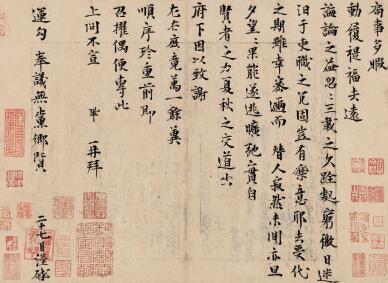 齋事多暇
動履禔福去遠
誨論之益忽三載之久跧處窮徼日迷
汩于吏職之冗固豈有樂意耶去受代
之期雖幸密邇而替人寂然未聞亦旦
夕望望果能遂逃曠弛之責自
賢者之力夏秋之交道出
府下因以致謝
左右庶竟萬一餘冀
順序珍重前即
召擢偶便專此
上問不宣 鞏再拜
運勾奉議無黨鄉賢
二十七日謹啟